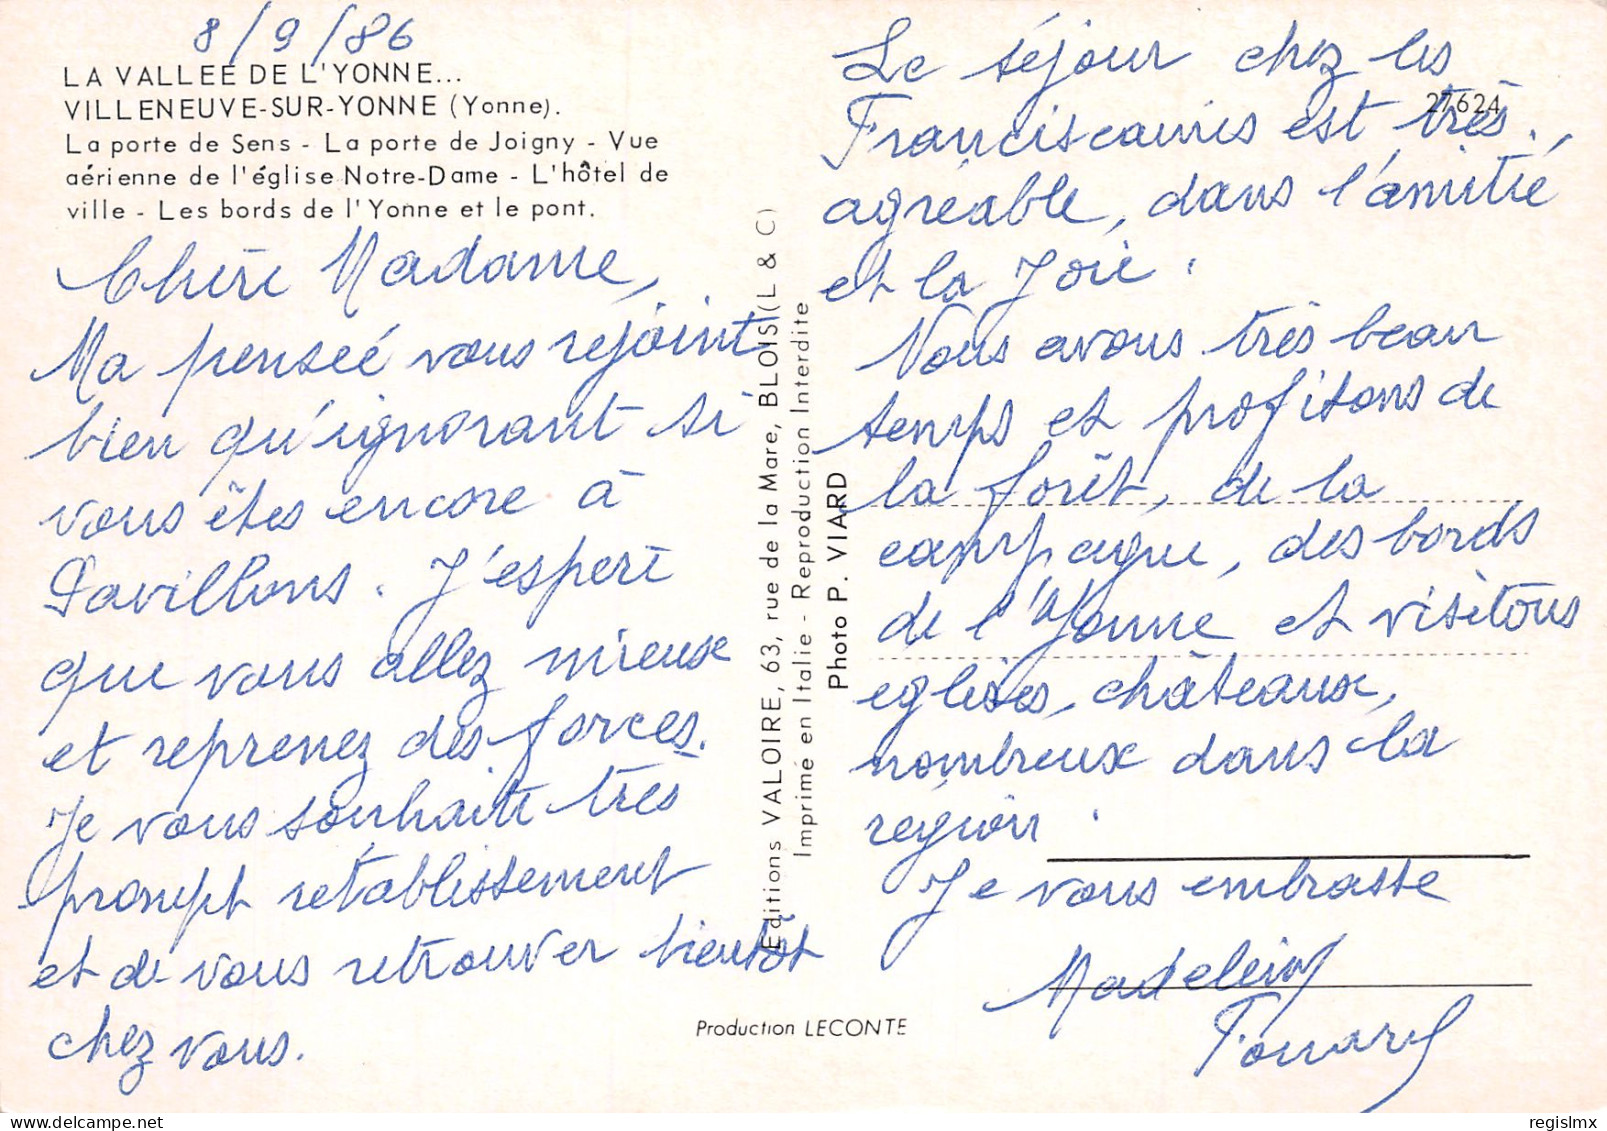 8/9/86
LA VALLEE DE L'YONNE...
VILLENEUVE-SUR-YONNE (Yonne).
La porte de Sens - La porte de Joigny - Vue
aérienne de l'église Notre-Dame - L'hôtel de
ville - Les bords de l'Yonne et le pont.
Chère Madame,
Ma pensée vous rejoint
bien qu'ignorant si
vous êtes encore à
Pavillons. J'espère
que vous allez mieux
et reprenez des forces.
Je vous souhaite très
prompt rétablissement
et de vous retrouver bientôt
chez vous.
Editions VALOIRE, 63, rue de la Mare, BLOIS (L & C)
Imprimé en Italie - Reproduction Interdite
Photo P. VIARD
Production LECONTE
27624
Le séjour chez les
Franciscaines est très
agréable, dans l'amitié
et la Joie.
Nous avons très beau
temps et profitons de
la forêt, de la
campagne, des bords
de l'Yonne et visitons
églises, châteaux,
nombreux dans la
région.
Je vous embrasse
Madeleine
regislmx